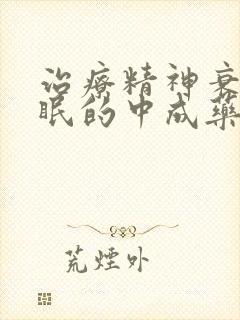 治療精神衰
眠的中成藥
荒煙外